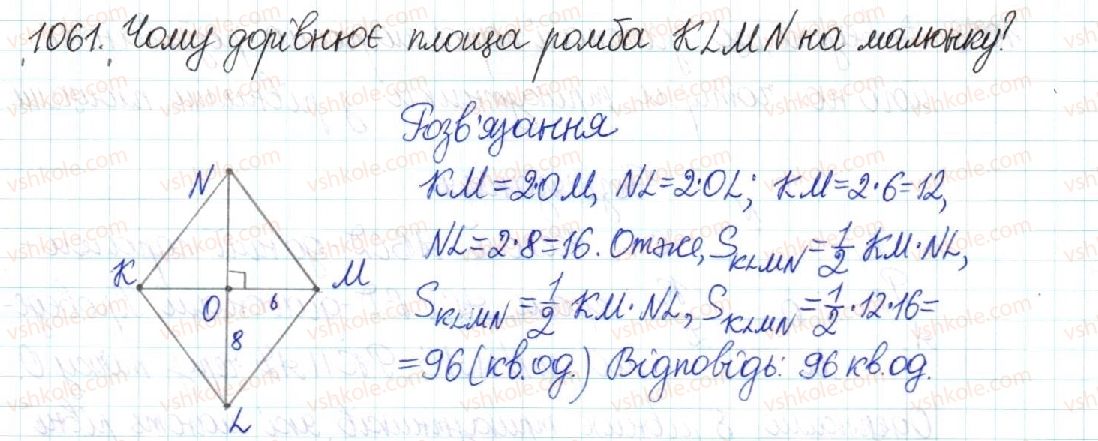 1061. Чому дорівнює площа ромба KLMN на малюнку?
Розв'язання
KM=2·OM, NL=2·OL; KM=2·6=12,
NL=2·8=16. Отже, S_KLMN = 1/2 KM·NL,
S_KLMN = 1/2 KM·NL, S_KLMN = 1/2·12·16=
=96 (кв.од.) Відповідь: 96 кв.од.
N
K
M
O
6
8
L
vshkole.com